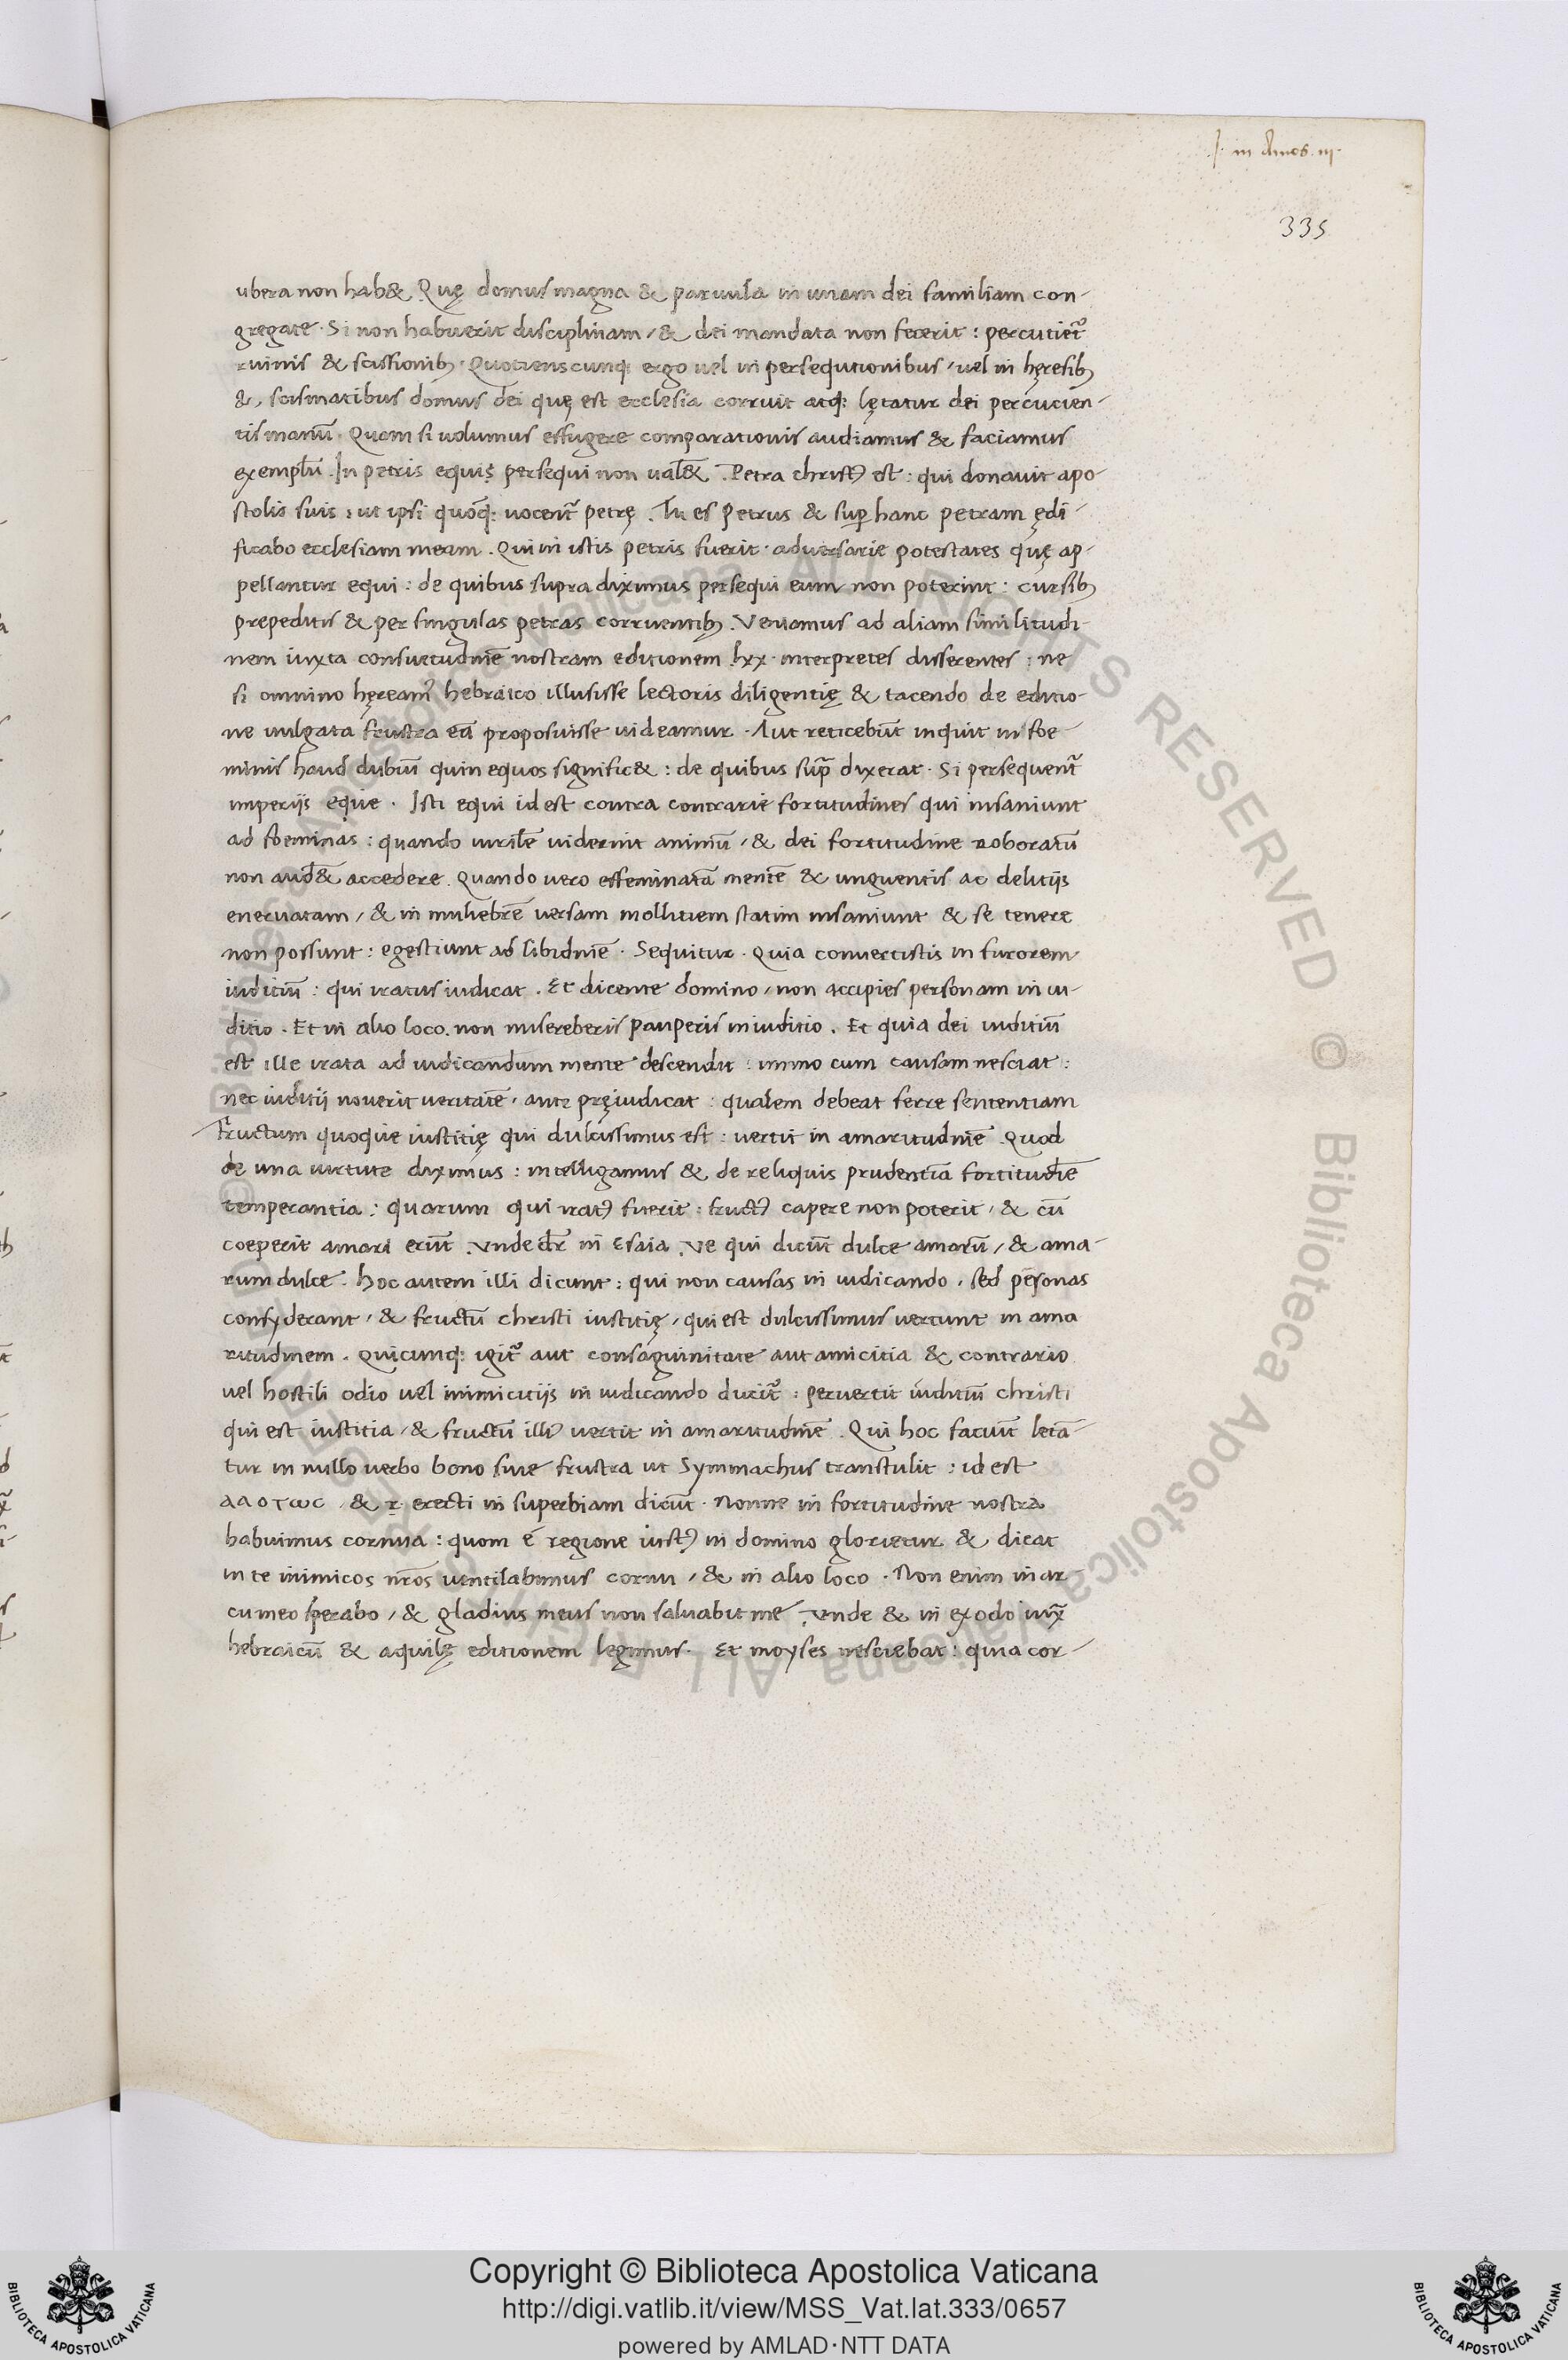 J. in Amos. iij.
335
ubera non hab& Quę domus magna & paruula in unam dei familiam con-
gregate. Si non habuerit disciplinam / & dei mandata non fecerit : percutiet᷑
ruinis & scissionib; Quotienscunq; ergo uel in persequutionibus / uel in hęresib;
& scismatibus domus dei quę est ecclesia corruit atq; lętatur dei percucien-
tis manū. Quam si uolumus effugere comparationis audiamus & faciamus
exemplū. In petris equis persequi non ual& . Petra christꝰ est : qui donauit apo-
stolis suis : ut ipsi quoq; uocent᷑ petrę . Tu es petrus & sup hanc petram ędi-
ficabo ecclesiam meam . Qui in istis petris fuerit . aduersarie potestates quę ap-
pellantur equi : de quibus supra diximus persequi eum non poterint : cursib;
prepeditis & per singulas petras corruentib; . Veniamus ad aliam similitudi-
nem iuxta consuetudinē nostram editionem lxx . interpretes disserentes : ne
si omnino hęreamꝰ hebraico illusisse lectoris diligentię & tacendo de editio-
ne uulgata frustra eā proposuisse uideamur . Aut reticebūt inquit in foe-
minis haud dubiū quin equos signific& : de quibus supͣ dixerat . Si persequent᷑
imperijs eque . Isti equi id est contra contrarie fortitudines qui insaniunt
ad foeminas : quando uirilē uiderint animū / & dei fortitudine roboratū
non aud& accedere . Quando uero effeminatā mentē & unguentis ac delitijs
eneruatam / & in muliebrē uersam mollitiem statim insaniunt & se tenere
non possunt : egestiunt ad libidinē . Sequitur . Quia conuertistis in furorem
iuditiū : qui iratus iudicat . Et dicente domino / non accipies personam in iu-
ditio . Et in alio loco . non misereberis pauperis in iuditio . Et quia dei iuditiū
est ille irata ad iudicandum mente descendit : immo cum causam nesciat :
nec iuditij nouerit ueritatē . ante pręiudicat : qualem debeat ferre sententiam
fructum quoque iustitię qui dulcissimus est : uertit in amaritudinē . Quod
de una uirtute diximus : intelligamus & de reliquis prudentia fortitudīe
temperantia : quarum qui iratꝰ fuerit : fructꝰ capere non poterit / & cū
coeperit amari erūt . Vnde dr̄ in Esaia . Ve qui dicūt dulce amarū / & ama-
rum dulce . hoc autem illi dicunt : qui non causas in iudicando . sed pesonas
consyderant / & fructū christi iustitię / qui est dulcissimus uertunt in ama
ritudinem . Quicunq; igit᷑ aut consaguinitate aut amicitia & contrario
uel hostili odio uel inimicitijs in iudicando ducit᷑ : peruertit iuditiū christi
qui est iustitia / & fructū illiꝰ uertit in amaritudinē . Qui hoc faciūt letā-
tur in nullo uerbo bono siue frustra ut Symmachus transtulit : id est
ααοτωϲ . & r. erecti in superbiam dicūt . Nonne in fortitudine nostra
habuimus cornua : quom é regione iustꝰ in domino glorietur & dicat
in te inimicos nr̄os uentilabimus cornu / & in alio loco . Non enim in ar-
cu meo sperabo / & gladius meus non saluabit me . Vnde & in exodo iux͂
hebraicū & aquilę editionem legimus . Et moyses nesciebat : quia cor-
Copyright © Biblioteca Apostolica Vaticana
http://digi.vatlib.it/view/MSS_Vat.lat.333/0657
powered by AMLAD·NTT DATA